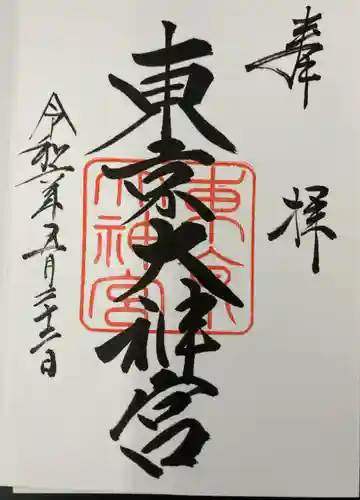 奉拝
東京大神宮
令和六年五月二十二日
東京大神宮